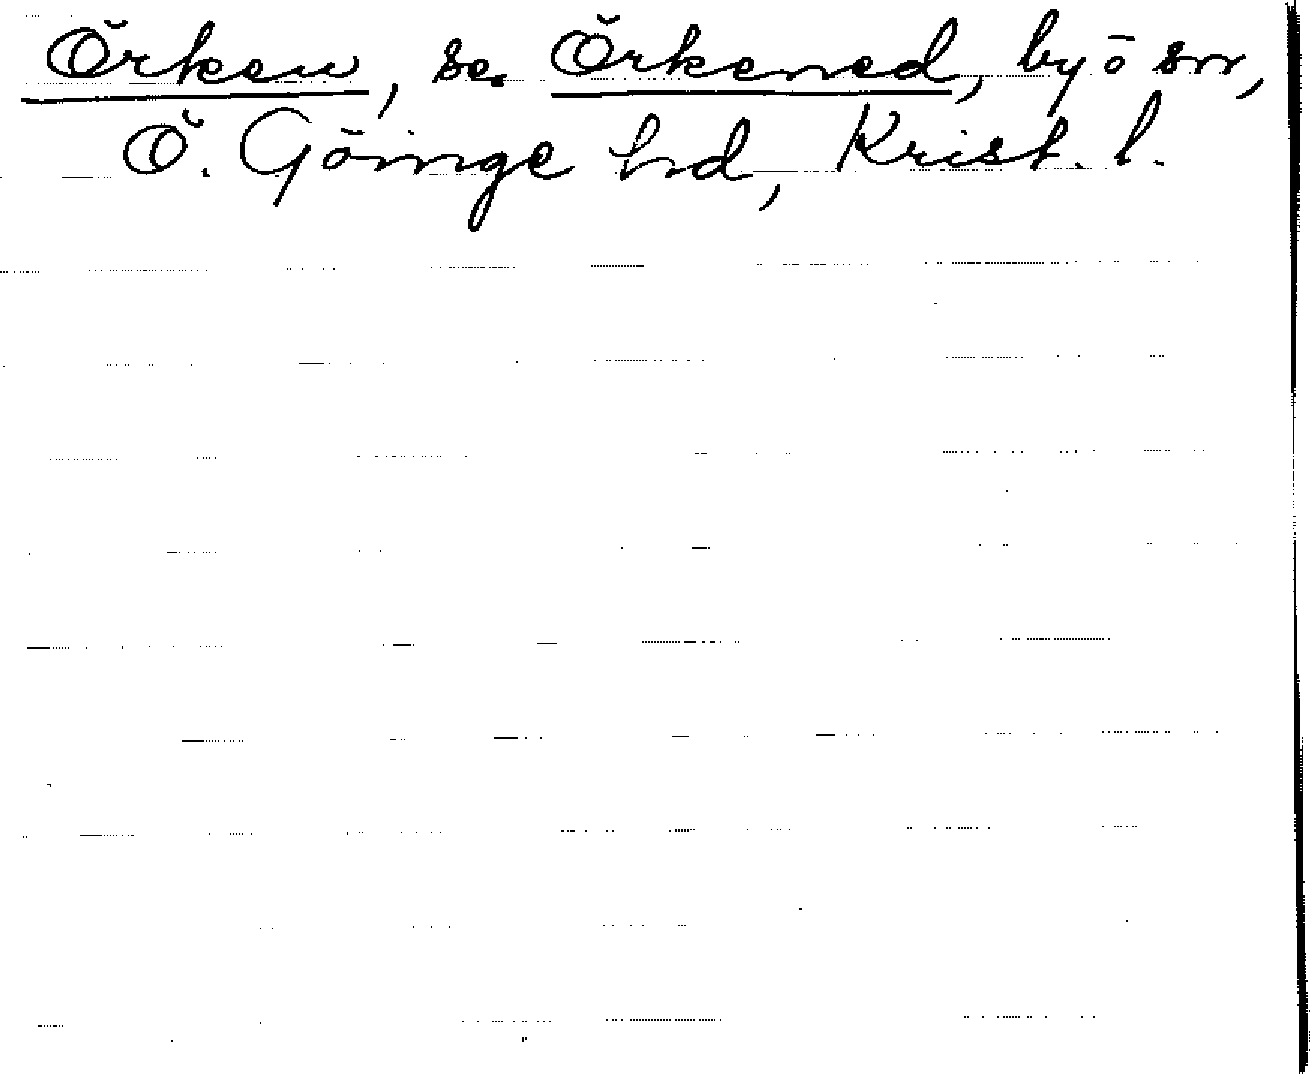 Örken, se Örkened, by o sn,
Ö. Göinge hd, Krist. l.